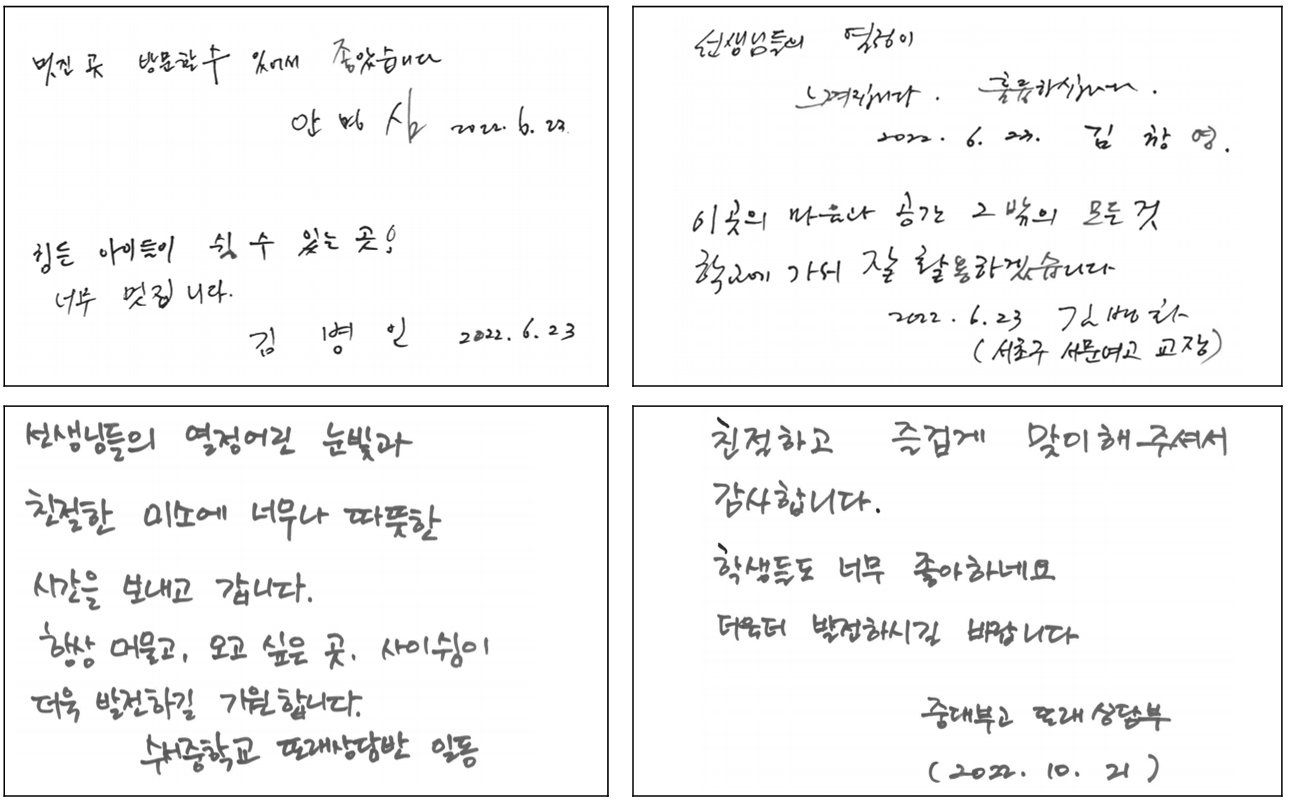 멋진 곳 방문할 수 있어서 좋았습니다
안 명 심 2022. 6. 23
힘든 아이들이 쉴 수 있는 곳!
너무 멋집니다.
김 병 인 2022. 6. 23
선생님들의 열정이
느껴집니다. 훌륭하십니다.
2022. 6. 23. 김 창 영.
이곳의 마음과 공간 그 밖의 모든 것
학교에 가서 잘 활용하겠습니다
2022. 6. 23 김
(서초구 서문여고 교장)
선생님들의 열정어린 눈빛과
친절한 미소에 너무나 따뜻한
시간을 보내고 갑니다.
항상 머물고, 오고 싶은 곳. 사이쉼이
더욱 발전하길 기원합니다.
수서중학교 또래상담반 일동
친절하고 즐겁게 맞이해주셔서
감사합니다.
학생들도 너무 좋아하네요
더욱더 발전하시길 바랍니다
중대부고 또래상담부
(2022. 10. 21)